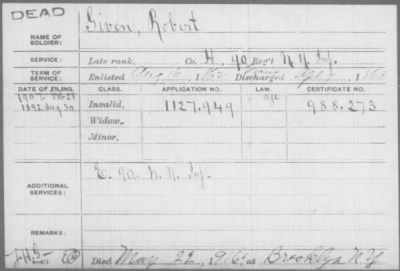 DEAD
NAME OF SOLDIER: Given, Robert
SERVICE: Late rank, Co. H, 90 Reg't N.Y. Inf.
TERM OF SERVICE: Enlisted Aug 16, 1862 Discharged 186
DATE OF FILING. CLASS. APPLICATION NO. LAW. CERTIFICATE NO.
1892 Aug 30 Invalid, 1127.949 988.273
Widow,
Minor,
ADDITIONAL SERVICES: E. 90. N.Y. Inf.
REMARKS:
Died May 22, 1916, at Brooklyn N.Y.